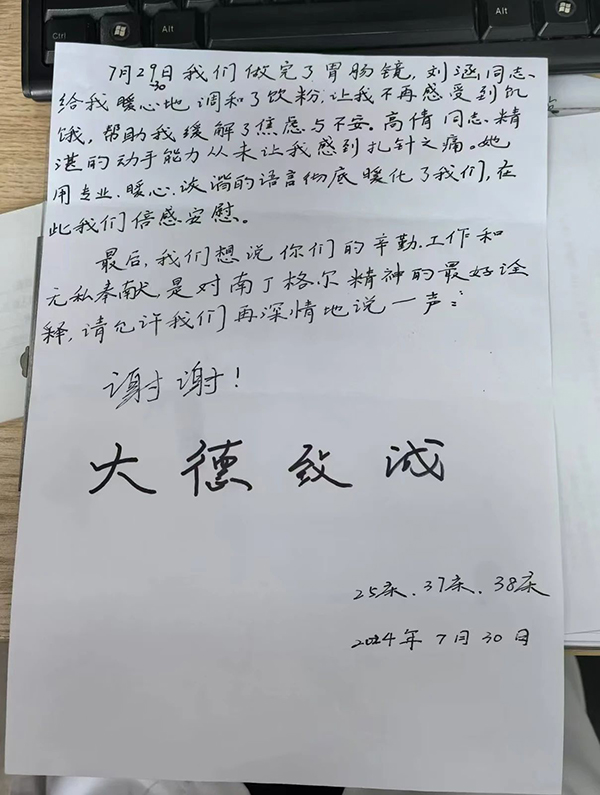 Ctrl
Alt
Alt
7月29日我们做完了胃肠镜,刘涵同志、
30
给我暖心地调和了饮粉,让我不再感受到饥
饿,帮助我缓解了焦虑与不安。高倩同志精
湛的动手能力从未让我感到扎针之痛。她
用专业、暖心、诙谐的语言彻底暖化了我们,在
此我们倍感安慰。
最后,我们想说你们的辛勤工作和
无私奉献,是对南丁格尔精神的最好诠
释,请允许我们再深情地说一声:
谢谢!
大德致诚
25床、37床、38床
2024年7月30日